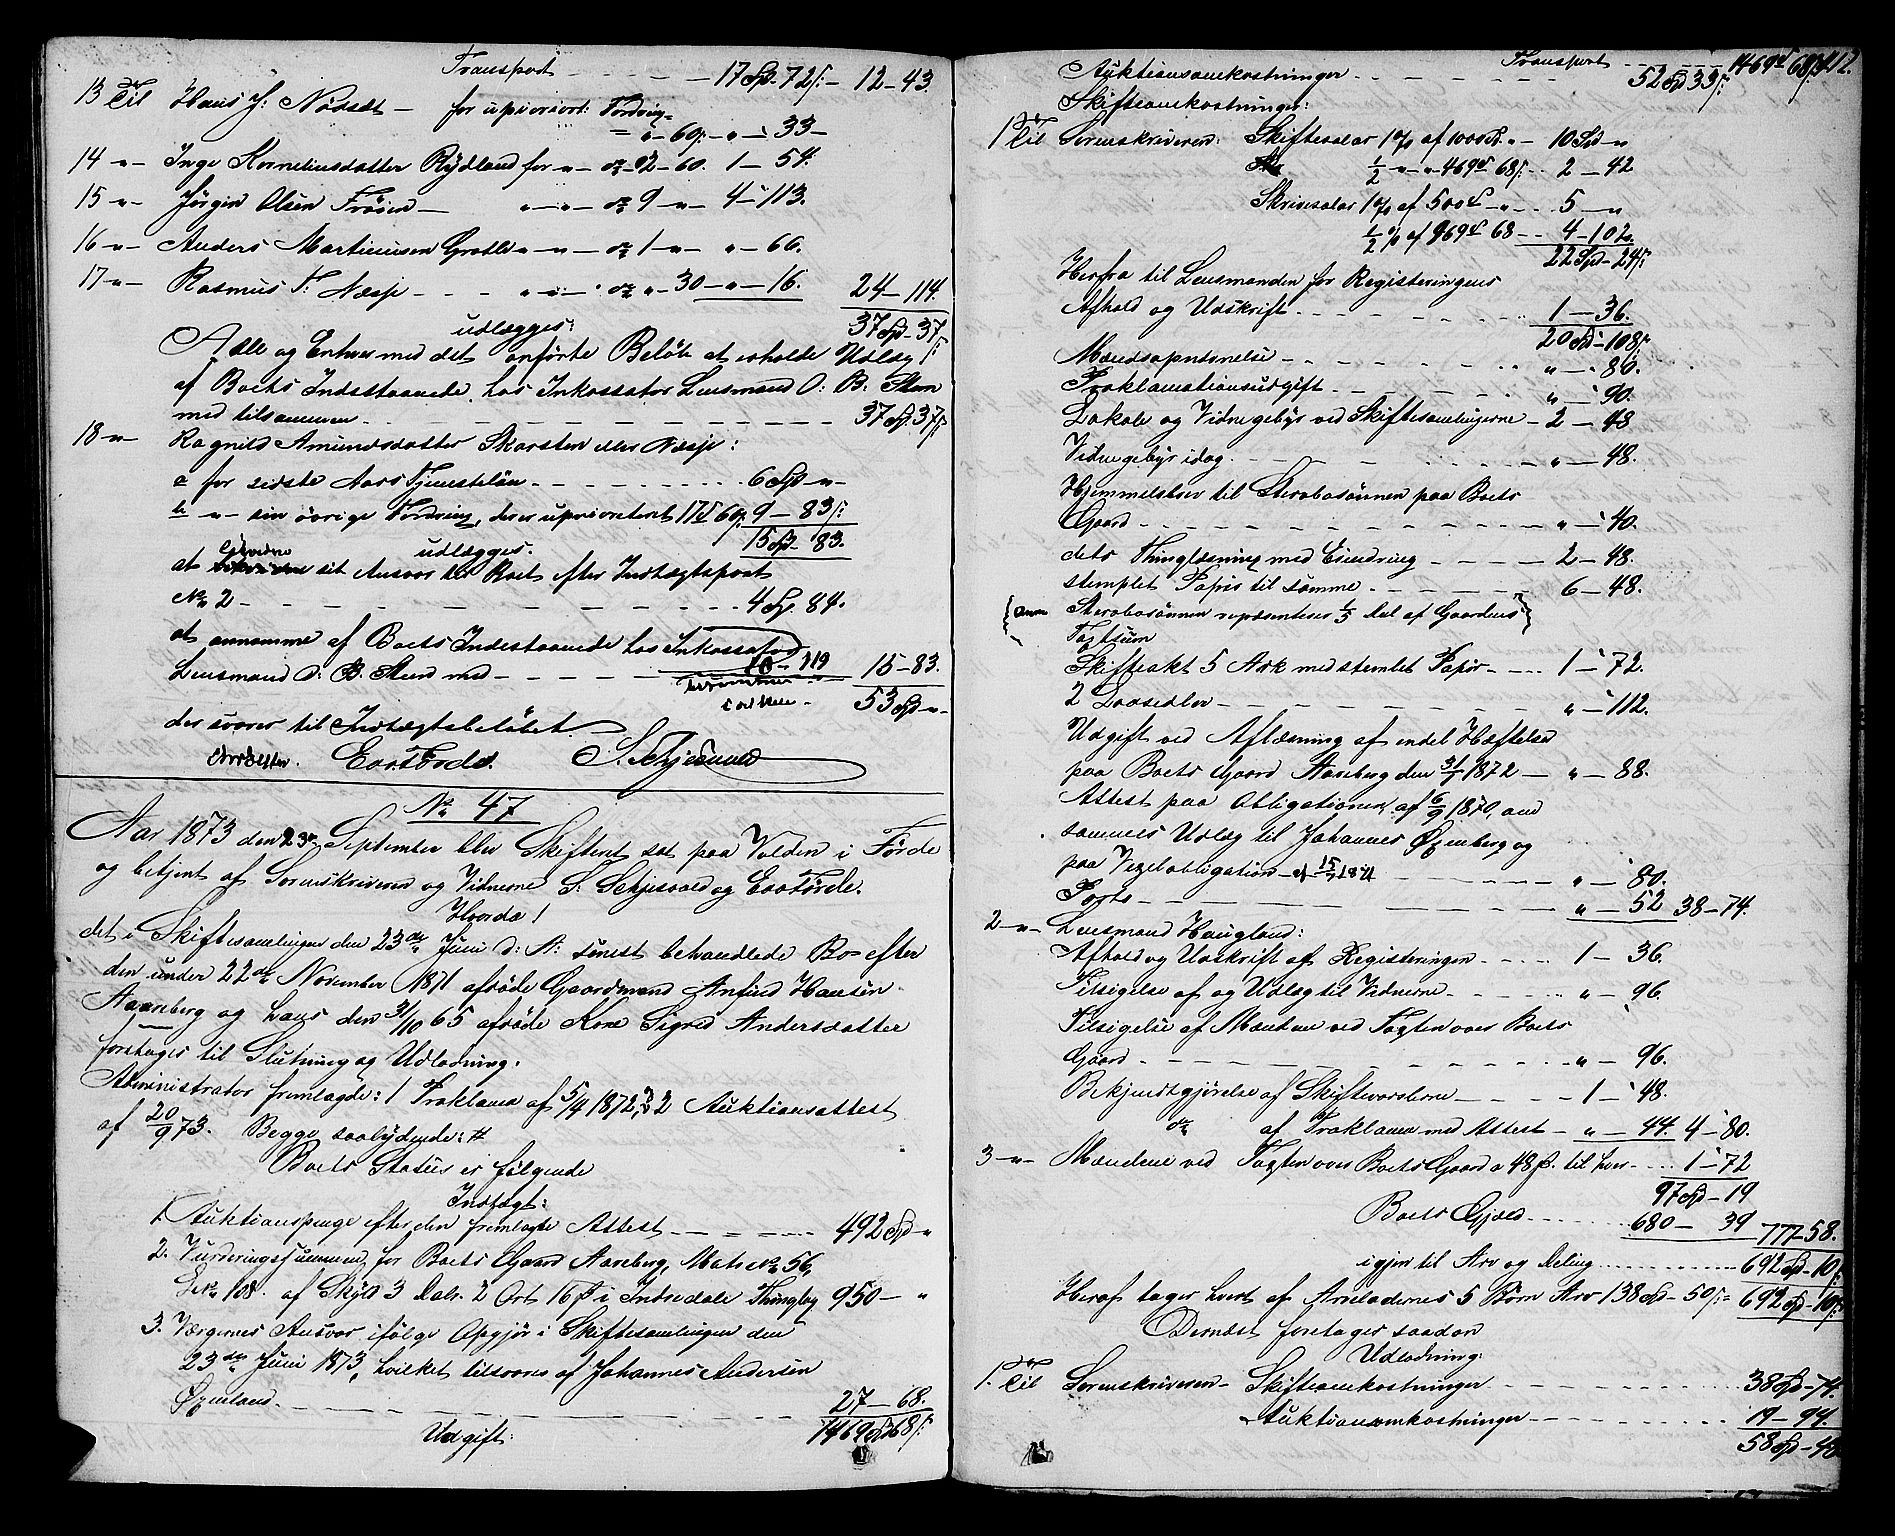 Transport - - - - - 17 Spd. 72 ß: - 12 - 43.
13 Til Hans J: Nødset - for uprioriort: Fordring
" - 60. " - 33 -
14 " - Inge Korneliusdatter Rydland for " - do 2 - 60. 1 - 54.
15 " - Jørgen Olsen Frøien - " - " - do 9 - " - 4 - 113.
16 " - Anders Martinusen Grotle " - " - do 1 - " - " - 66.
17 " - Rasmus T: Næsje - - - " - " - do " - 30 - " - 16. 24 - 114.
udlægges: 37 Spd - 37 ß:
Alle og Enhver med det anførte Beløb at erholde Udlæg
af Boets Indestaaende hos Inkassator Lensmand O: B:
med tilsammen - - - - - 37 Sp. 37 ß:
18 " - Ragnild Amundsdatter Skorsten eller Næsje:
a for sidste Aars Tjenesteløn - - - - 6 Spd " -
b " - sin øvrige Fordring, der er uprioriteret 17 S 60 ß, 9 - 83 ß:
udlægges: 15 Spd - 83.
at sit Ansvar til Boet efter Indtægtspost
No 2 - - - - - 4 Sp. 84.
at annamme af Boets Indestaaende hos Inkassator
Lensmand O: B: med - - - - - 10 - 119 15 - 83.
53 Spd " -
der svarer til Indtægtsbeløbet.
E. Førde. S. Schjelvaad
No 47
Aar 1873 den 23de September blev Skifteret sat paa Volden i Førde
og betjent af Sorenskriveren og Vidnerne S: Schjelvaad og E. Førde.
Hvorda!
det i Skiftesamlingen den 23de Juni d: A: senest behandlede Bo efter
den under 22de November 1871 afdøde Gaardmand Anfind Hansen
Aareberg og hans den 31/10 65 afdøde Kone Sigrid Andersdatter
foretages til Slutning og Udlodning.
Administrator fremlagde: 1 Proklama af 5/4 1872, 2 Auktionsattest
af 20/9 73. Begge saalydende: #
Boets Status er følgende
Indtægt:
1. Auktionspenge efter den fremlagte Attest - - - - - 492 Spd - "
2. Vurderingssummen for Boets Gaard Aareberg, Matr. No 56,
L No 108. af Skyld 3 Dalr. 2 Ort 16 ß i Indredale Thinglag 950 - "
3. Værgernes Ansvar ifølge Opgjør i Skiftesamlingen den
23de Juni 1873, hvilket tilsvares af Johannes Andersen
Øxenland - - - - - 27 - 68.
Udgift: 1469 Spd 68 ß:
112.
Transport - - - - 1469 S 68 ß
Auktionsomkostninger - - - - - 52 Spd 33 ß:
Skifteomkostninger:
1 Til Sorenskriveren: Skiftesalar 1 % af 1000 S. " - 10 Spd - "
1/2 " - " - 469 S 68 ß: - 2 - 42
Skrivesalar 1 % af 500 S - " - - - 5 - "
1/2 % af 969 S 68 - - 4 - 102.
22 Spd - 24 ß:
Herfra til Lensmanden for Registreringens
Afhold og Udskrift - - - - - 1 - 36.
20 Spd - 108 ß:
Mændsopnævnelse - - - - - " - 80.
Proklamationsudgift - - - - - " - 90.
Lokale og Vidnegebyr ved Skiftesamlingerne - 2 - 48
Vidnegebyr idag - - - - - " - 48.
Hjemmelsbrev til Sterbosønnen paa Boets
Gaard - - - - - " - 40.
dets Thinglæsning med Erindring - - - - 2 - 48.
stemplet Papir til samme - - - - - 6 - 48.
(Anm Sterbosønnen repræsenterer 1/5 Del af Gaardens)
Taxtsum
Skifteakt 5 Ark med stemlet Papir - - - 1 - 72.
2 Lodsedler - - - - - " - 112.
Udgift ved Aflæsning af endel Hæftelse
paa Boets Gaard Aareberg den 31/7 1872 - " - 88.
Attest paa Obligationen af 6/9 1870, om
sammes Udlæg til Johannes Øxenberg og
paa Vexelobligation af 15/
- - - - - " - 80.
Porto - - - - - " - 52 38 - 74.
2 - " - Lensmand Haugland:
Afhold og Udskrift af Registreringen - - - - 1 - 36.
Tilsigelse af og Udlæg til Vidnerne - - - - " - 96.
Tilsigelse af Mændene ved Taxten over Boets
Gaard - - - - - " - 96.
Bekjendtgjørelse af Skiftevarslerne - - - - 1 - 48.
do af Proklama med Attest - " - 44. 4 - 80.
3 - " - Mændene ved Taxten over Boets Gaard a 48 ß. til hver - - - 1 - 72
97 Spd - 19
Boets Gjæld - - - - - 680 - 39 777 - 58.
igjen til Arv og Deling - - - - - 692 Spd - 10 ß:
Heraf tager hvert af Arveladernes 5 Børn Arv 138 Spd - 50 ß: = 692 Spd - 10 ß:
Dernæst foretages saadan
Udlodning:
1. Til Sorenskriveren - Skifteomkostninger - - - - - 38 Spd - 74.
Auktionsomkostninger - - - - - 19 - 94.
58 Spd - 48